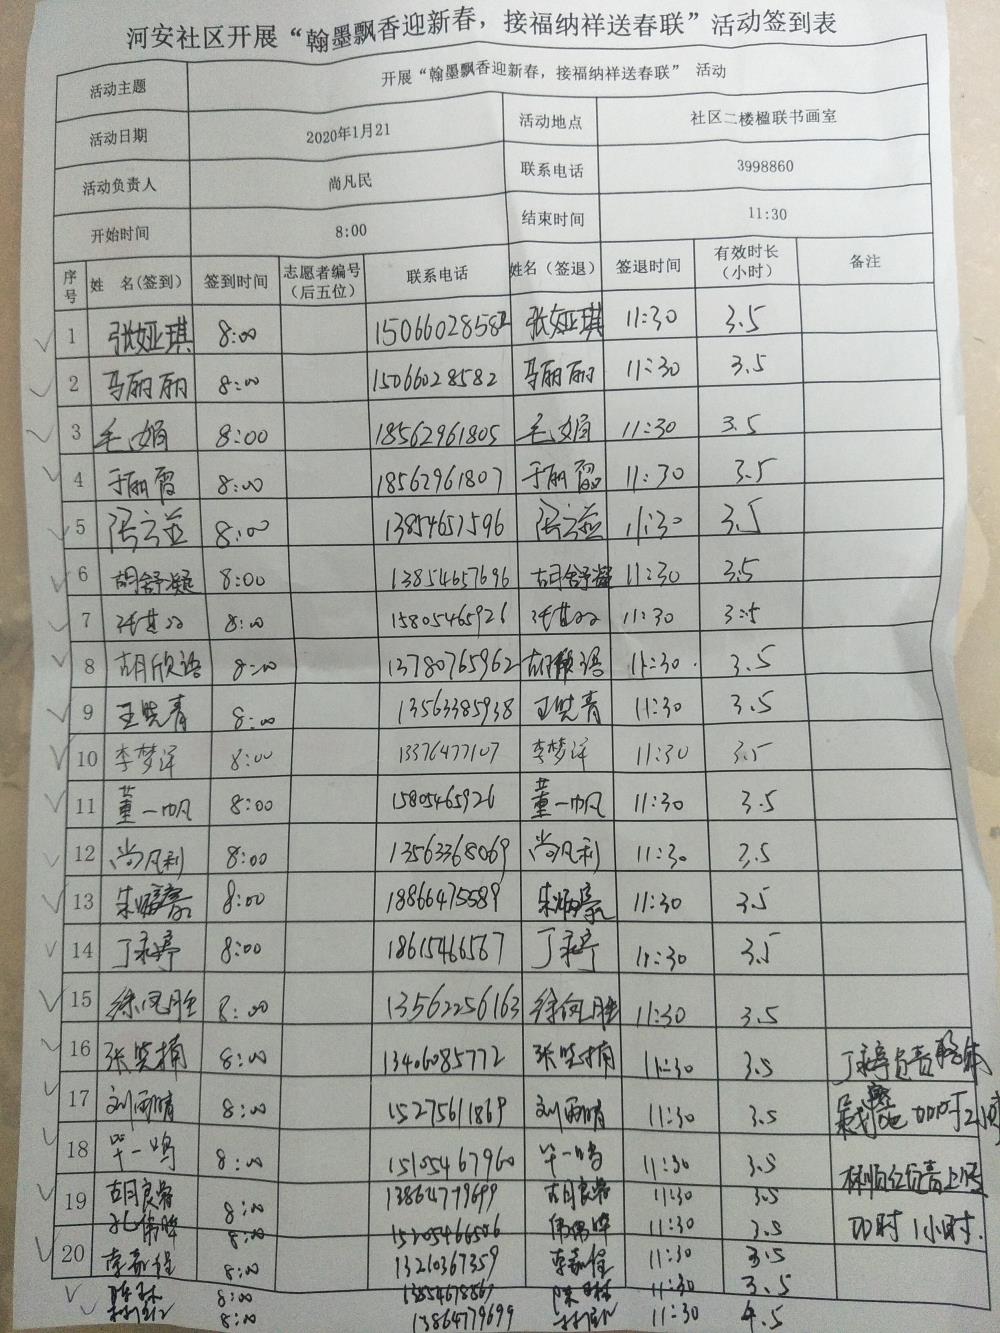 河安社区开展“翰墨飘香迎新春，接福纳祥送春联”活动签到表
活动主题 开展“翰墨飘香迎新春，接福纳祥送春联” 活动
活动日期 2020年1月21 活动地点 社区二楼楹联书画室
活动负责人 尚凡民 联系电话 3998860
开始时间 8:00 结束时间 11:30
序号 姓 名(签到) 签到时间 志愿者编号（后五位） 联系电话 姓名（签退） 签退时间 有效时长（小时） 备注
1 张娅琪 8:00 15066028582 张娅琪 11:30 3.5
2 马丽丽 8:00 15066028582 马丽丽 11:30 3.5
3 毛娟 8:00 18562961805 毛娟 11:30 3.5
4 于丽 8:00 18562961807 于丽 11:30 3.5
5 8:00 13854657596 11:30 3.5
6 胡舒凝 8:00 13854657696 胡舒凝 11:30 3.5
7 8:00 15805465926 11:30 3.5
8 胡欣语 8:00 13780765962 胡欣语 11:30 3.5
9 王晓青 8:00 13563385938 王晓青 11:30 3.5
10 李梦洋 8:00 13376477107 李梦洋 11:30 3.5
11 董一帆 8:00 15805465926 董一帆 11:30 3.5
12 尚凡利 8:00 13563368069 尚凡利 11:30 3.5
13 8:00 18866475589 11:30 3.5
14 8:00 18615466567 11:30 3.5
15 8:00 13562256163 11:30 3.5
16 张笑楠 8:00 13406085772 张笑楠 11:30 3.5
17 刘雨晴 8:00 15275611869 刘雨晴 11:30 3.5
18 毕一鸣 8:00 15105467960 毕一鸣 11:30 3.5
19 胡良岩 8:00 13864779699 胡良岩 11:30 3.5
8:00 15205466506 11:30 3.5 功时1小时.
20 李嘉程 8:00 13210367359 李嘉程 11:30 3.5
8:00 11:30 3.5
8:00 13864779699 11:30 4.5